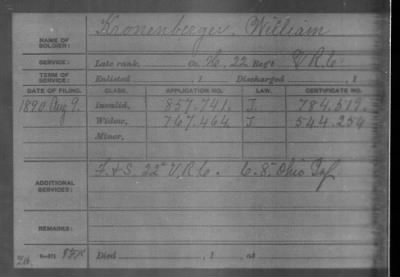 NAME OF SOLDIER: Kronenberger, William
SERVICE: Late rank, Co. H, 22 Reg't V.R.C.
TERM OF SERVICE: Enlisted , 1 Discharged , 1
DATE OF FILING. CLASS. APPLICATION NO. LAW. CERTIFICATE NO.
1890 Aug 9. Invalid, 857.741. J. 784.519.
Widow, 767.464 J. 544.254
Minor,
ADDITIONAL SERVICES: F. & S. 22" V.R.C. C. 8" Ohio Inf.
REMARKS:
Died , 1 , at